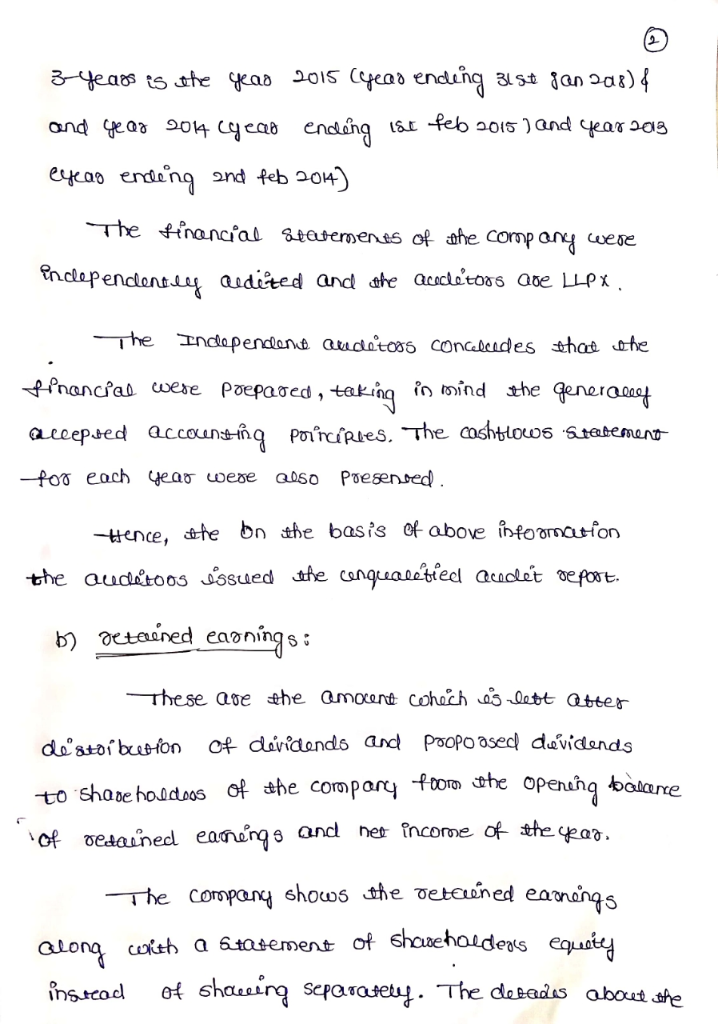 2
3 years is the year 2015 (year ending 31st Jan 2018) &
and year 2014 (year ending 1st feb 2015) and year 2013
(year ending 2nd feb 2014)
The financial statements of the company were
independently audited and the auditors are LLPX.
The Independent auditors concludes that the
financial were prepared, taking in mind the generally
accepted accounting principles. The cashflows statement
for each year were also presented.
Hence, the on the basis of above information
the auditors issued the unqualified audit report.
b) retained earnings:
These are the amount which is left after
distribution of dividends and proporsed dividends
to shareholdors of the company from the opening balance
of retained earnings and net income of the year.
The company shows the retained earnings
along with a statement of shareholders equity
instead of showing separately. The details about the